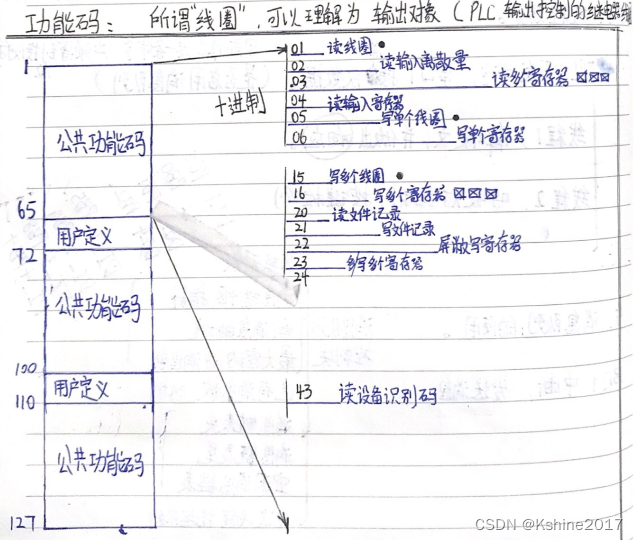 功能码： 所谓“线圈”，可以理解为 输出对象（PLC 输出控制的继电器线
1
公共功能码
65
用户定义
72
公共功能码
100
用户定义
110
公共功能码
127
十进制
01 读线圈
02 读输入离散量
03 读多个寄存器
04 读输入寄存器
05 写单个线圈
06 写单个寄存器
15 写多个线圈
16 写多个寄存器
20 读文件记录
21 写文件记录
22 屏蔽写寄存器
23 写多个寄存器
24
43 读设备识别码
CSDN @Kshine2017